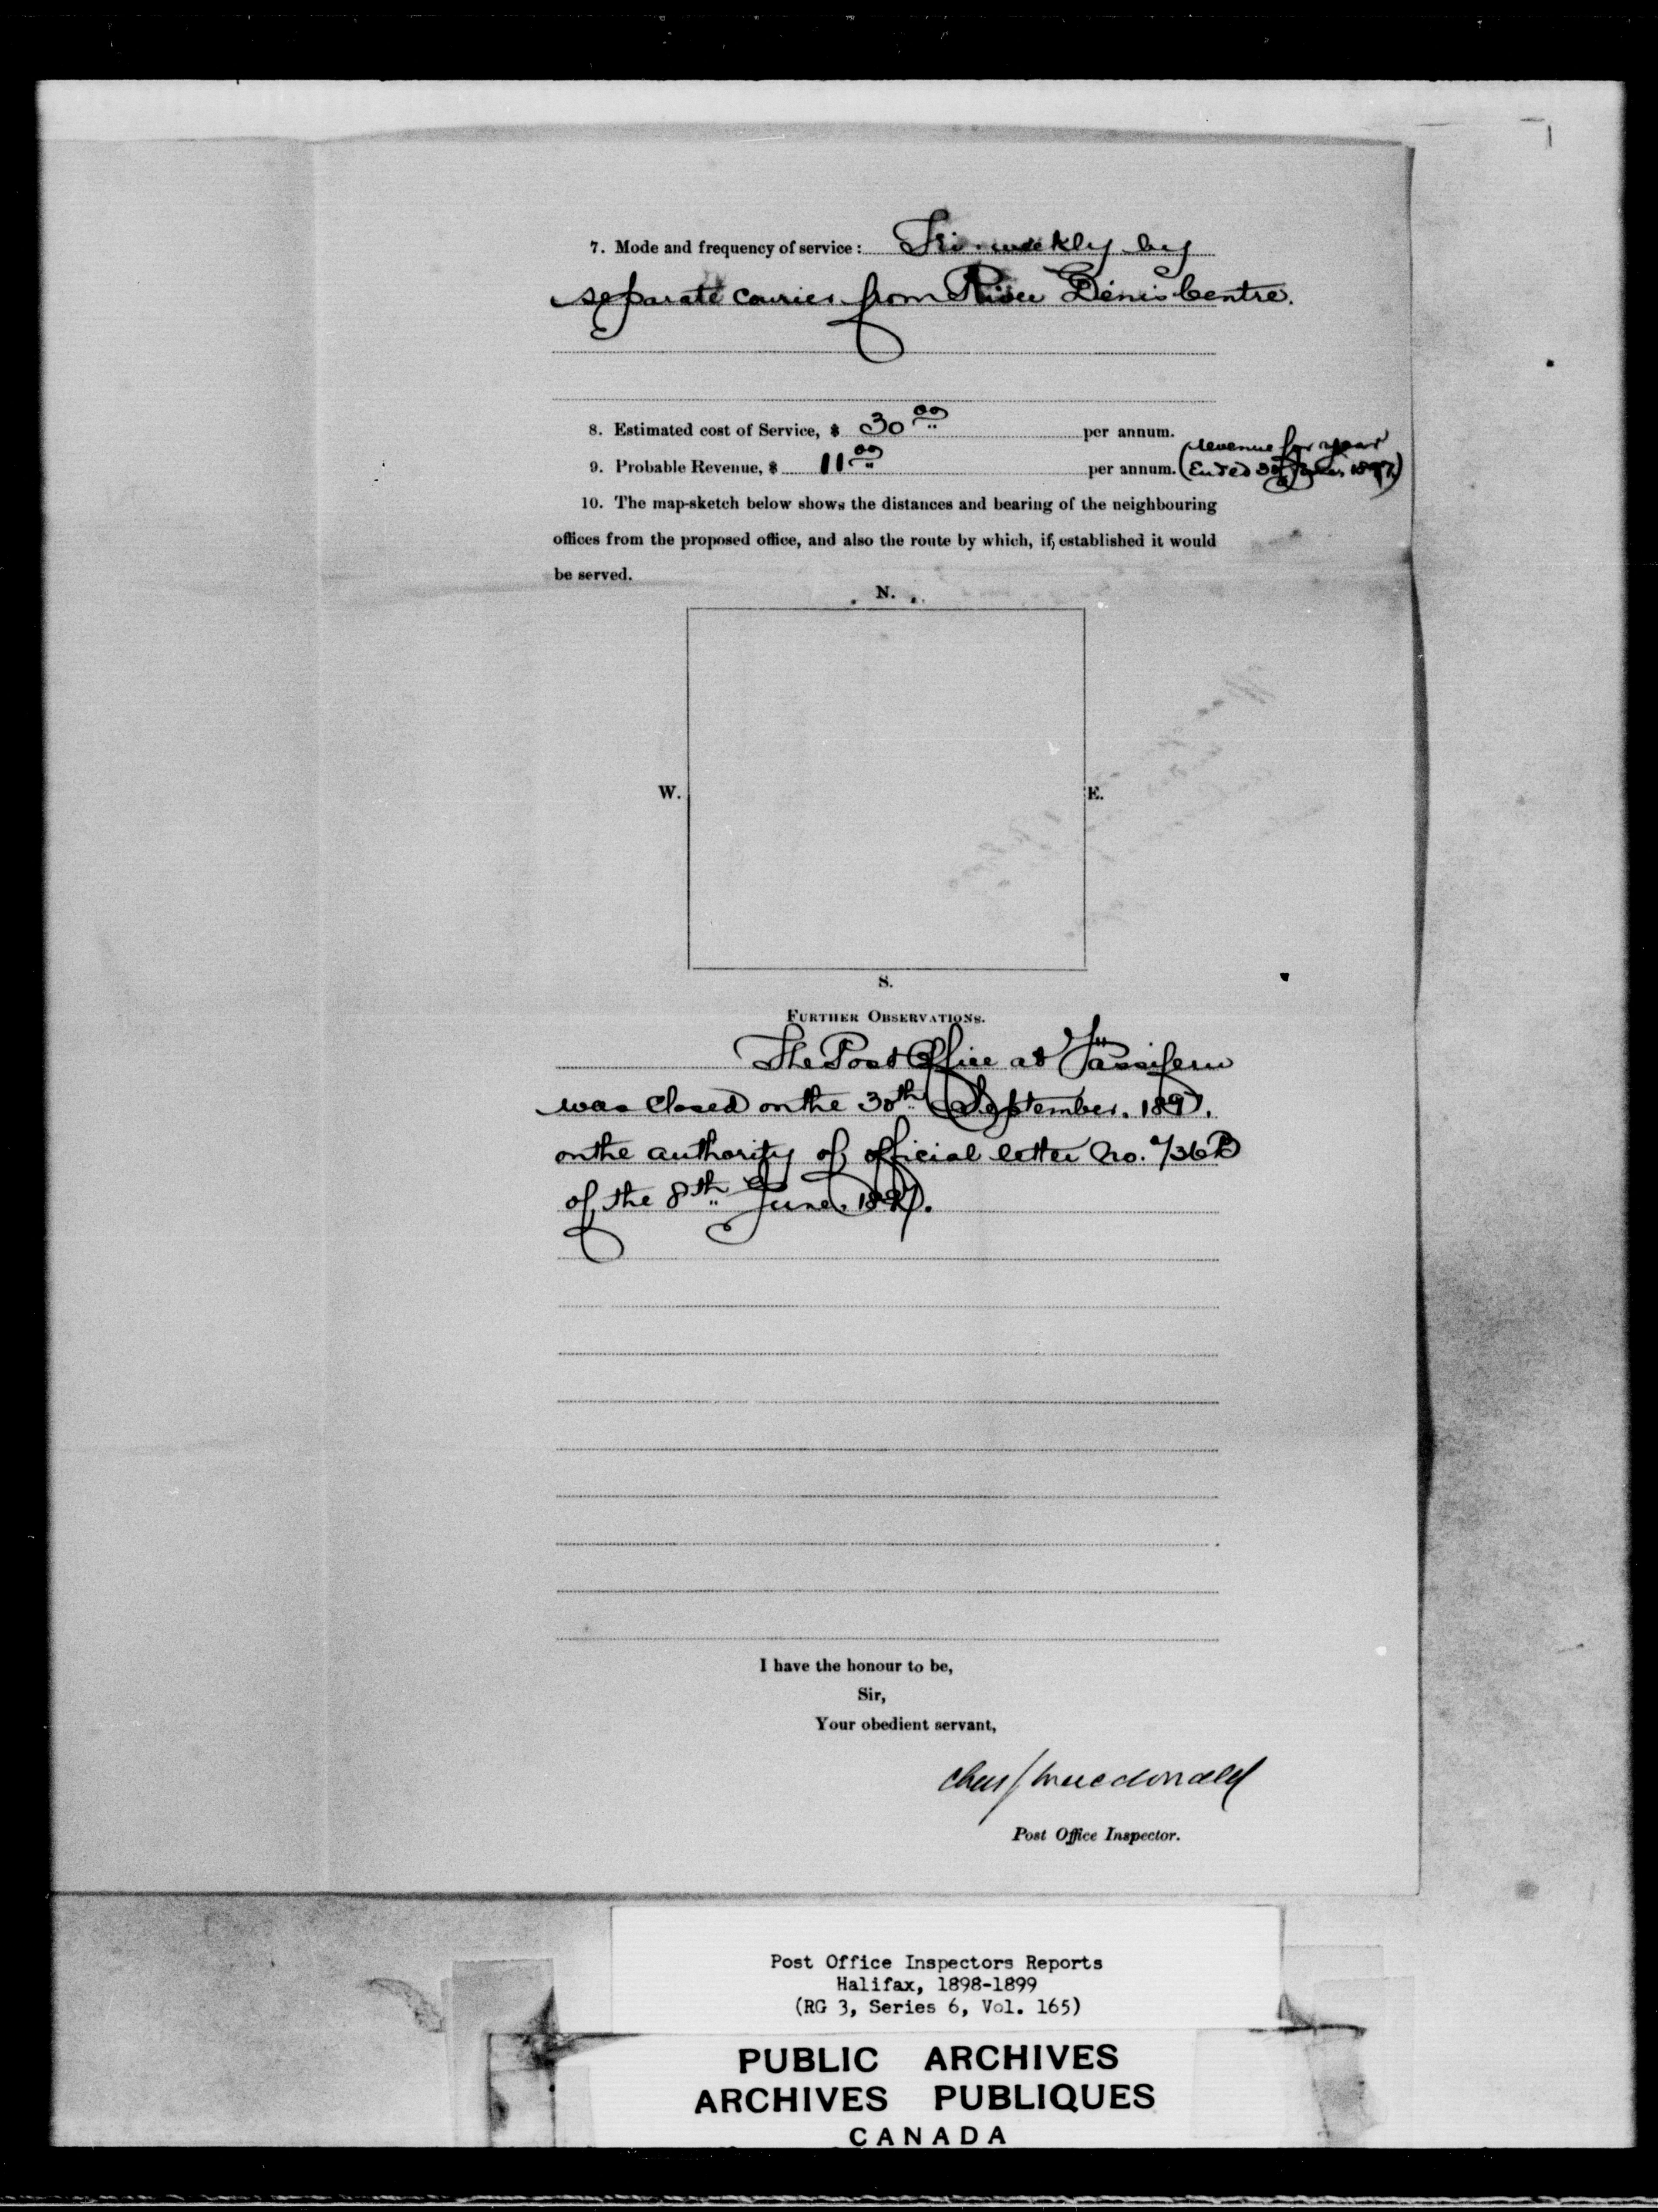 7. Mode and frequency of service: Tri-weekly by
separate courier from River Denis Centre.
8. Estimated cost of Service, $ 30.00 per annum.
9. Probable Revenue, $ 11.00 per annum. (revenue for year
Ended 30th June, 1897.)
10. The map-sketch below shows the distances and bearing of the neighbouring
offices from the proposed office, and also the route by which, if established it would
be served.
N.
W.
E.
S.
FURTHER OBSERVATIONS.
The Post Office at Fassifern
was closed on the 30th September, 1897,
on the authority of official letter No. 736B
of the 8th June, 1897.
I have the honour to be,
Sir,
Your obedient servant,
Chas J Macdonald
Post Office Inspector.
Post Office Inspectors Reports
Halifax, 1898-1899
(RG 3, Series 6, Vol. 165)
PUBLIC ARCHIVES
ARCHIVES PUBLIQUES
CANADA